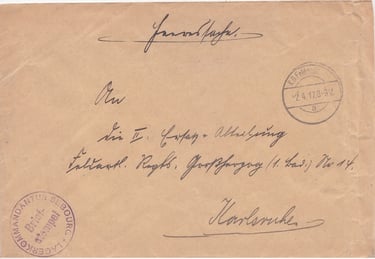 Heeressache.
An
die II. Ersatz-Abteilung
Feldartl. Regts. Großherzog (1. Bad.) Nr 14.
Karlsruhe
2.4.17.8-9V.
a
LAGERKOMMANDANTUR SEBOURG
Brief-
stempel